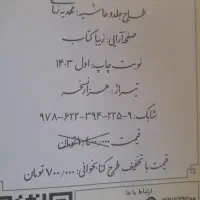 طراح جلد و حاشیه: مهدیه رضایی
صفحه‌آرایی: زیبا کتاب
نوبت چاپ: اول ۱۴۰۳
تیراژ: هزار نسخه
شابک: ۹-۲۲۵-۳۹۴-۶۲۲-۹۷۸
قیمت ۱/۴۰۰/۰۰۰ تومان
قیمت با تخفیف طرح کتابخوانی: ۷۰۰/۰۰۰ تومان
ارتباط با ما